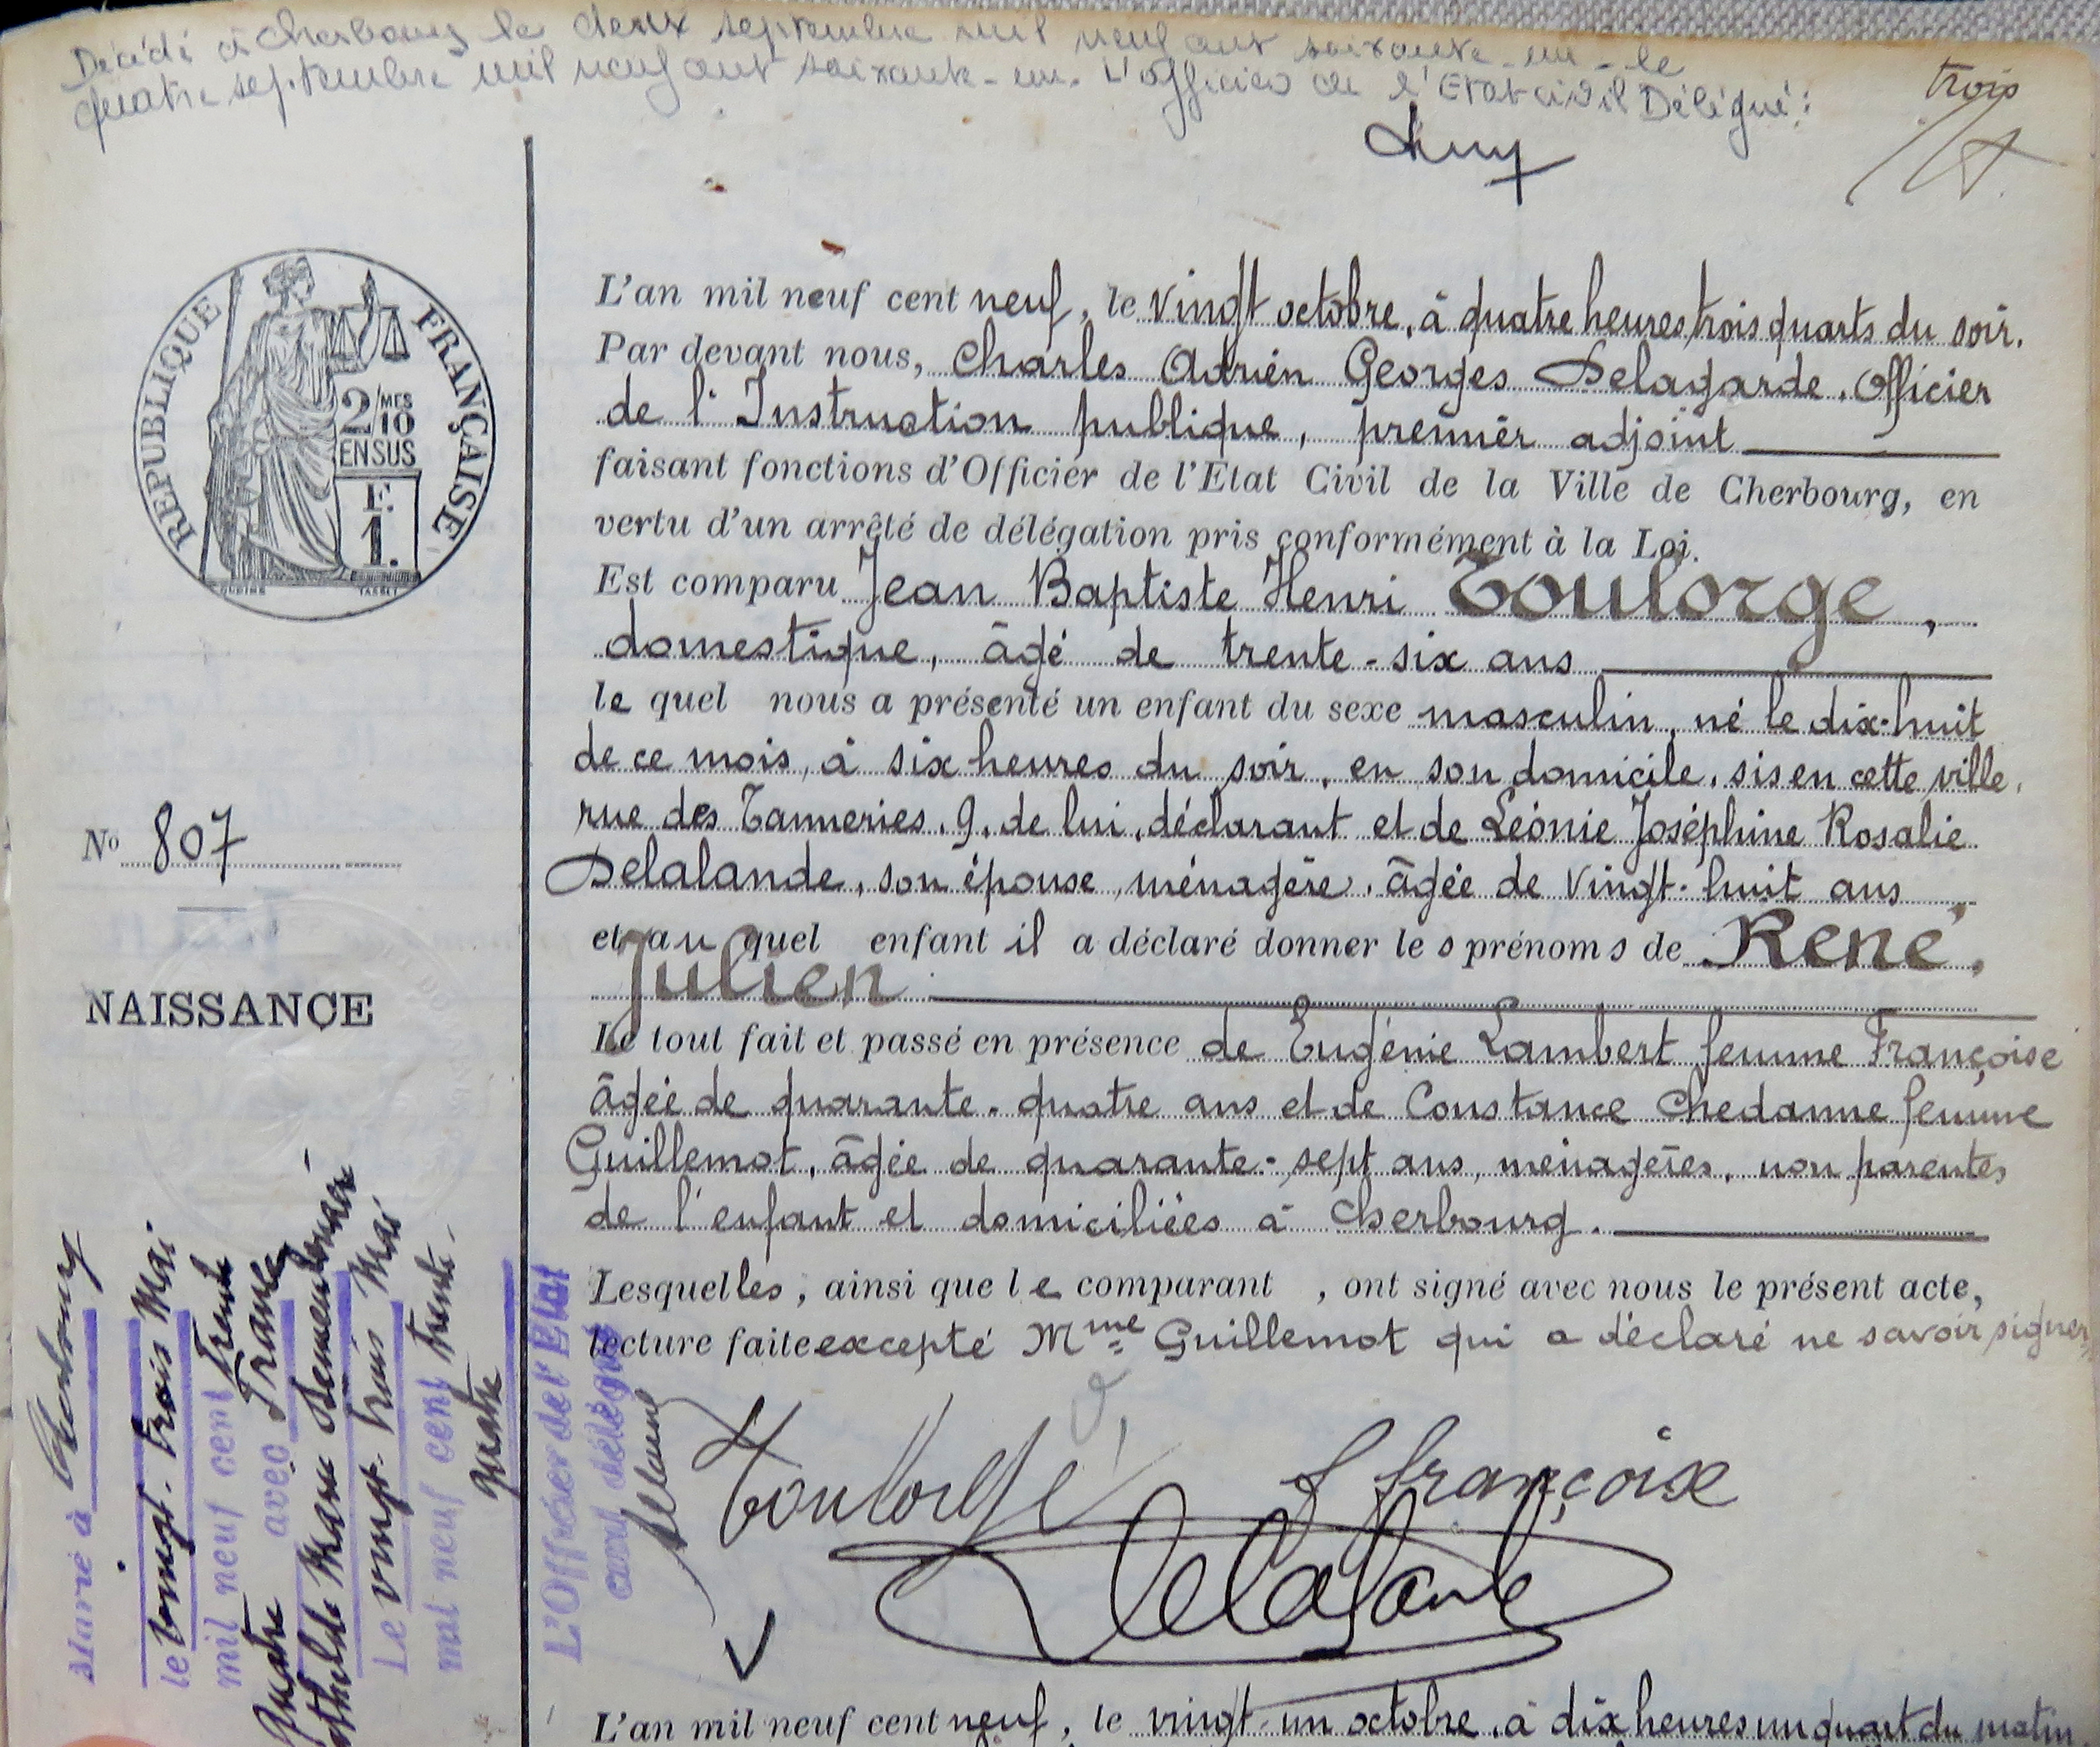 Décédé à Cherbourg le deux septembre mil neuf cent soixante-un - le
quatre septembre mil neuf cent soixante-un. L'officier de l'Etat civil Délégué :
trois
REPUBLIQUE FRANÇAISE
2/10 MES
EN SUS
F.
1.
OUDINE TASSET
L'an mil neuf cent neuf, le vingt octobre, à quatre heures trois quarts du soir.
Par devant nous, Charles Adrien Georges Delagarde, Officier
de l'Instruction publique, premier adjoint
faisant fonctions d'Officier de l'Etat Civil de la Ville de Cherbourg, en
vertu d'un arrêté de délégation pris conformément à la Loi.
Est comparu Jean Baptiste Henri Toulorge,
domestique, âgé de trente-six ans
le quel nous a présenté un enfant du sexe masculin, né le dix-huit
de ce mois, à six heures du soir, en son domicile, sis en cette ville,
rue des Tanneries, 9, de lui, déclarant et de Léonie Joséphine Rosalie
Delalande, son épouse, ménagère, âgée de vingt-huit ans,
et au quel enfant il a déclaré donner les prénoms de René,
Julien
Le tout fait et passé en présence de Eugénie Lambert femme Françoise
âgée de quarante-quatre ans et de Constance Chedanne femme
Guillemot, âgée de quarante-sept ans, ménagères, non parentes
de l'enfant et domiciliées à Cherbourg.
Lesquelles, ainsi que le comparant, ont signé avec nous le présent acte,
lecture faite excepté Mme Guillemot qui a déclaré ne savoir signer
Toulorge
f françoise
Delagarde
No 807
NAISSANCE
Marié à Cherbourg
le vingt-trois Mai
mil neuf cent Trente
quatre avec France
Mathilde Marie
Le vingt-trois Mai
mil neuf cent trente-
quatre
L'Officier de l'Etat
civil délégué
L'an mil neuf cent neuf, le vingt-un octobre, à dix heures un quart du matin